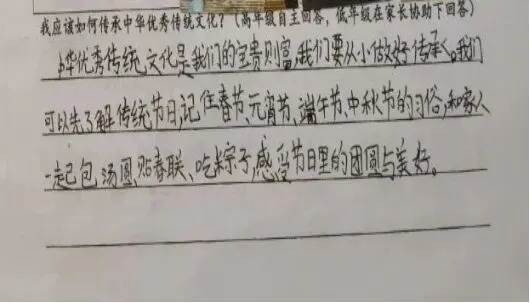 我应该如何传承中华优秀传统文化?(高年级自主回答,低年级在家长协助下回答)
中华优秀传统文化是我们的宝贵财富,我们要从小做好传承人。我们
可以先了解传统节日,记住春节、元宵节、端午节、中秋节的习俗,和家人
一起包汤圆、贴春联、吃粽子,感受节日里的团圆与美好。